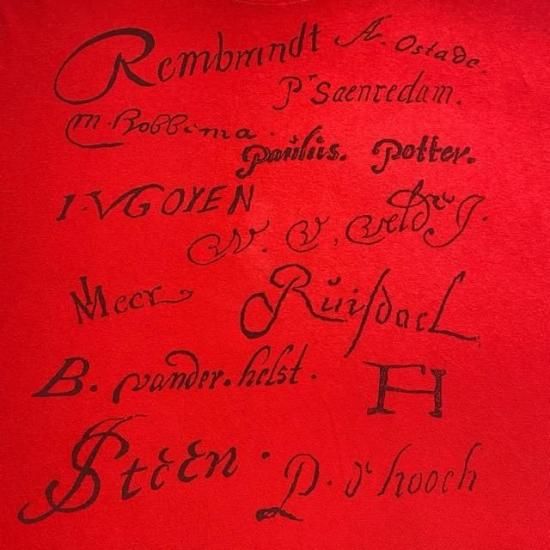 Rembrandt A. Ostade.
Pr Saenredam.
m. Hobbema.
Paulus. Potter.
I.VGOYEN
W. V. Velde J.
Meer
Ruisdael
B. vander. helst.
FH
JSteen.
P. d' hooch